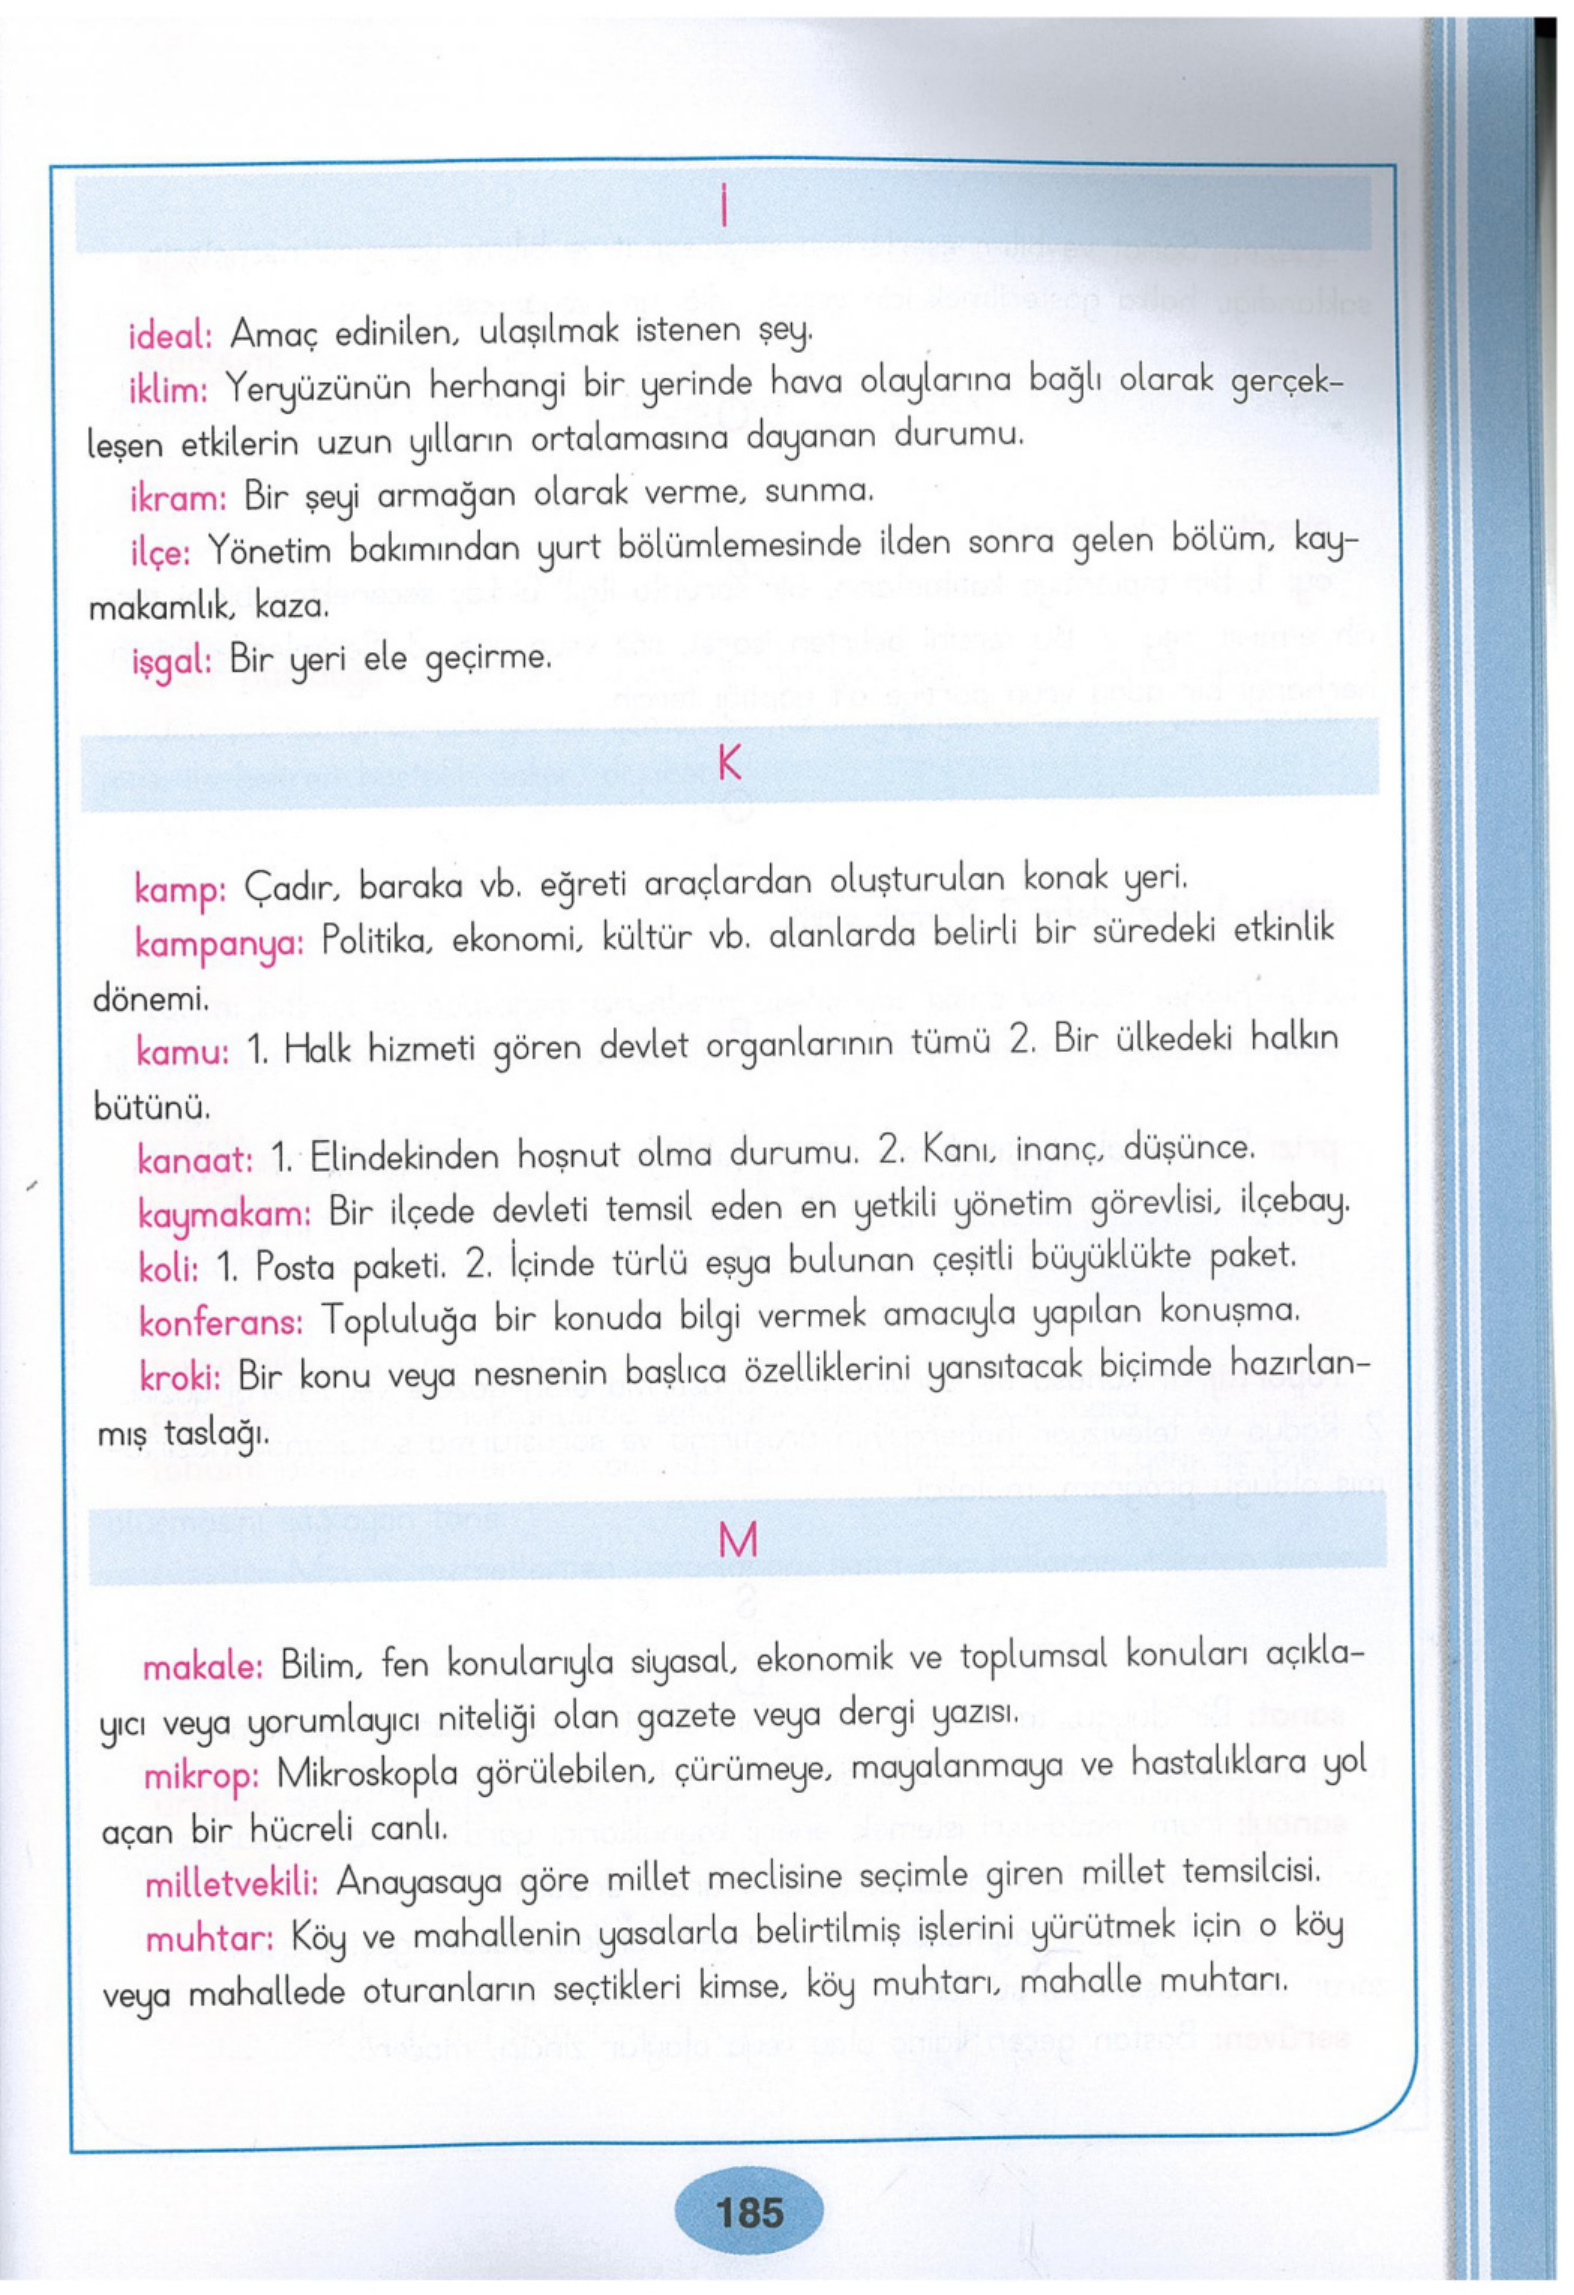 İ
ideal: Amaç edinilen, ulaşılmak istenen şey.
iklim: Yeryüzünün herhangi bir yerinde hava olaylarına bağlı olarak gerçek-
leşen etkilerin uzun yılların ortalamasına dayanan durumu.
ikram: Bir şeyi armağan olarak verme, sunma.
ilçe: Yönetim bakımından yurt bölümlemesinde ilden sonra gelen bölüm, kay-
makamlık, kaza.
işgal: Bir yeri ele geçirme.
K
kamp: Çadır, baraka vb. eğreti araçlardan oluşturulan konak yeri.
kampanya: Politika, ekonomi, kültür vb. alanlarda belirli bir süredeki etkinlik
dönemi.
kamu: 1. Halk hizmeti gören devlet organlarının tümü 2. Bir ülkedeki halkın
bütünü.
kanaat: 1. Elindekinden hoşnut olma durumu. 2. Kanı, inanç, düşünce.
kaymakam: Bir ilçede devleti temsil eden en yetkili yönetim görevlisi, ilçebay.
koli: 1. Posta paketi. 2. İçinde türlü eşya bulunan çeşitli büyüklükte paket.
konferans: Topluluğa bir konuda bilgi vermek amacıyla yapılan konuşma.
kroki: Bir konu veya nesnenin başlıca özelliklerini yansıtacak biçimde hazırlan-
mış taslağı.
M
makale: Bilim, fen konularıyla siyasal, ekonomik ve toplumsal konuları açıkla-
yıcı veya yorumlayıcı niteliği olan gazete veya dergi yazısı.
mikrop: Mikroskopla görülebilen, çürümeye, mayalanmaya ve hastalıklara yol
açan bir hücreli canlı.
milletvekili: Anayasaya göre millet meclisine seçimle giren millet temsilcisi.
muhtar: Köy ve mahallenin yasalarla belirtilmiş işlerini yürütmek için o köy
veya mahallede oturanların seçtikleri kimse, köy muhtarı, mahalle muhtarı.
185